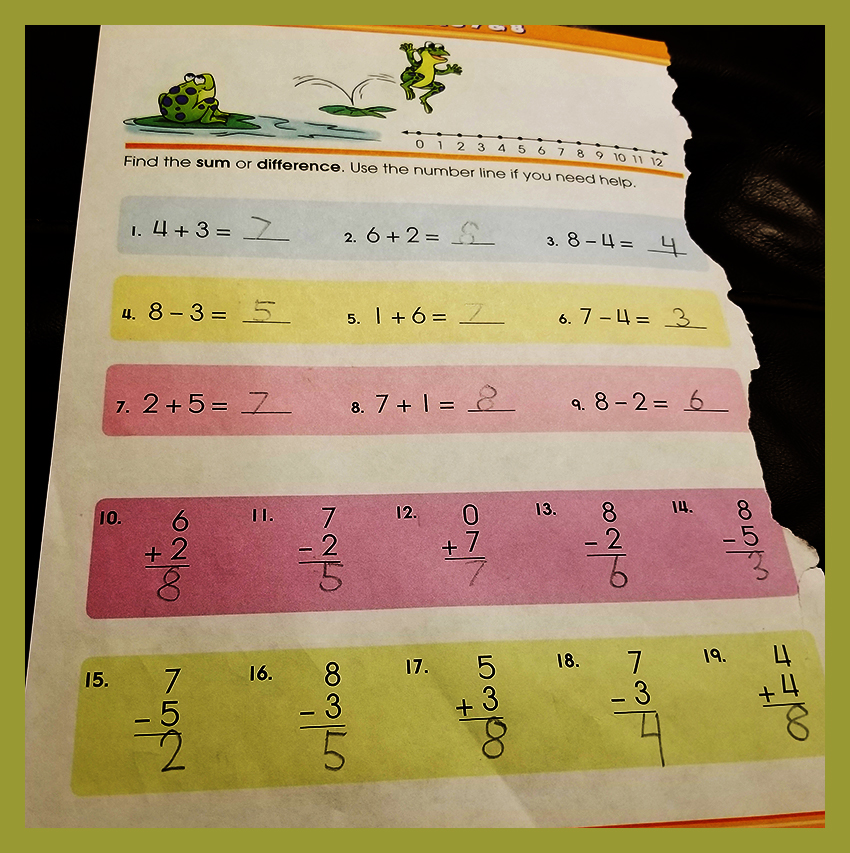 0 1 2 3 4 5 6 7 8 9 10 11 12
Find the sum or difference. Use the number line if you need help.
1. 4 + 3 = 7 2. 6 + 2 = 8 3. 8 – 4 = 4
4. 8 – 3 = 5 5. 1 + 6 = 7 6. 7 – 4 = 3
7. 2 + 5 = 7 8. 7 + 1 = 8 9. 8 – 2 = 6
10. 6 11. 7 12. 0 13. 8 14. 8
+ 2 – 2 + 7 – 2 – 5
8 5 7 6 3
15. 7 16. 8 17. 5 18. 7 19. 4
– 5 – 3 + 3 – 3 + 4
2 5 8 4 8